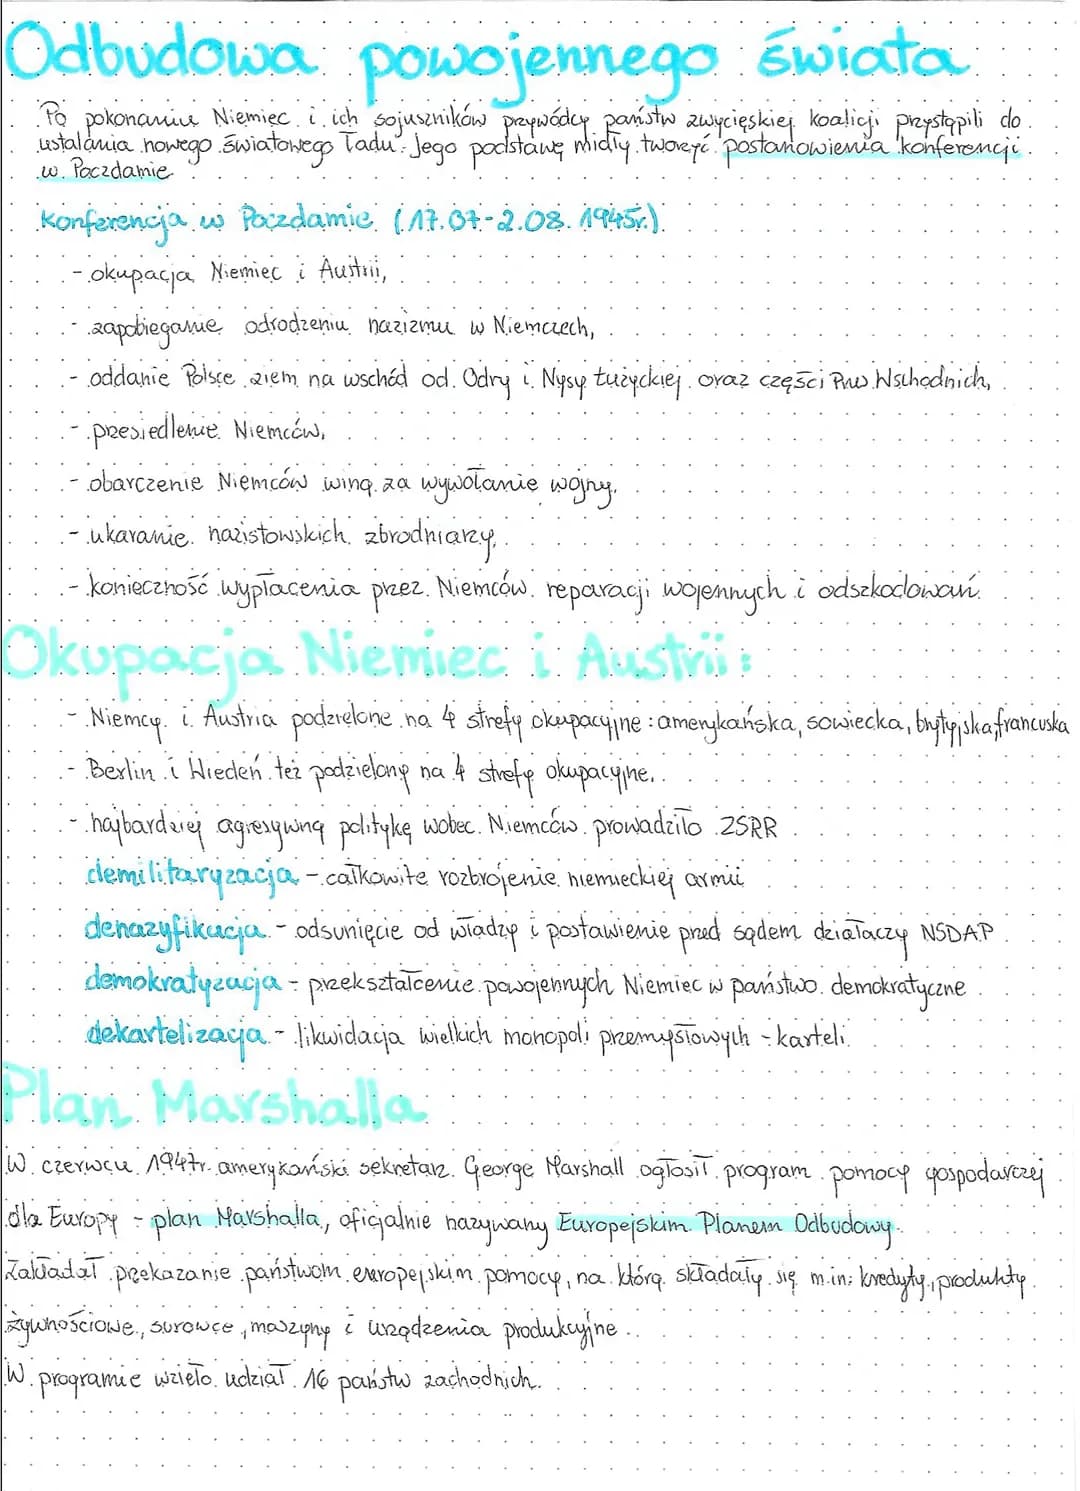 Odbudowa powojennego świata
Po pokonaniu Niemiec i ich sojuszników przywódcy państw zwycięskiej koalicji przystąpili do
ustalania nowego światowego ładu. Jego podstawę miały tworzyć postanowienia konferencji
w Poczdamie
Konferencja w Poczdamie (17.07-2.08.1945r.)
- okupacja Niemiec i Austrii,
- zapobieganie odrodzeniu nazizmu w Niemczech,
- oddanie Polsce ziem na wschód od Odry i Nysy Łużyckiej oraz części Prus Wschodnich,
- przesiedlenie Niemców,
- obarczenie Niemców winą za wywołanie wojny,
- ukaranie nazistowskich zbrodniarzy,
- konieczność wypłacenia przez Niemców reparacji wojennych i odszkodowań.
Okupacja Niemiec i Austrii:
- Niemcy i Austria podzielone na 4 strefy okupacyjne: amerykańska, sowiecka, brytyjska, francuska
- Berlin i Wiedeń też podzielony na 4 strefy okupacyjne,
- najbardziej agresywną politykę wobec Niemców prowadziło ZSRR
demilitaryzacja - całkowite rozbrojenie niemieckiej armii
denazyfikacja - odsunięcie od władzy i postawienie przed sądem działaczy NSDAP
demokratyzacja - przekształcenie powojennych Niemiec w państwo demokratyczne
dekartelizacja - likwidacja wielkich monopoli przemysłowych - karteli.
Plan Marshalla
W czerwcu 1947r. amerykański sekretarz George Marshall ogłosił program pomocy gospodarczej
dla Europy - plan Marshalla, oficjalnie nazywany Europejskim Planem Odbudowy.
Zakładał przekazanie państwom europejskim pomocy, na którą składały się m.in: kredyty, produkty
żywnościowe, surowce, maszyny i urządzenia produkcyjne.
W programie wzięło udział 16 państw zachodnich.